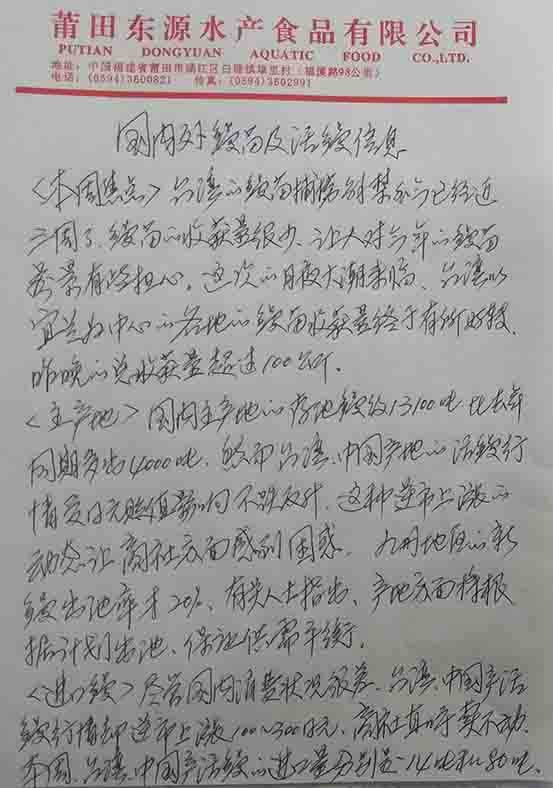 莆田东源水产食品有限公司
PUTIAN DONGYUAN AQUATIC FOOD CO.,LTD.
地址：中国福建省莆田市涵江区白塘镇埭里村（福厦路98公里）
电话：(0594)3600821 传真：(0594)3602991
国内外鳗苗及活鳗信息
〈本周焦点〉台湾的鳗苗捕捞解禁至今已经近
三周了，鳗苗的收获量很少，让人对今年的鳗苗
前景有些担心。这次的月夜大潮来临，台湾以
宜兰为中心的各地的鳗苗收获量终于有所好转，
昨晚的总收获量超过100公斤。
〈主产地〉国内主产地的存池鳗约13100吨，比去年
同期多出4000吨，然而台湾、中国产地的活鳗行
情受日元贬值影响不跌反升，这种逆市上涨的
动态让商社方面感到困惑。九州地区的新
鳗出池率才20%，有关人士指出，产地方面将根
据计划出池，保证供需平衡。
〈进口鳗〉尽管国内消费状况很差，台湾、中国产活
鳗行情却逆市上涨100~300日元，商社直呼买不动。
本周，台湾、中国产活鳗的进口量分别是14吨和80吨。